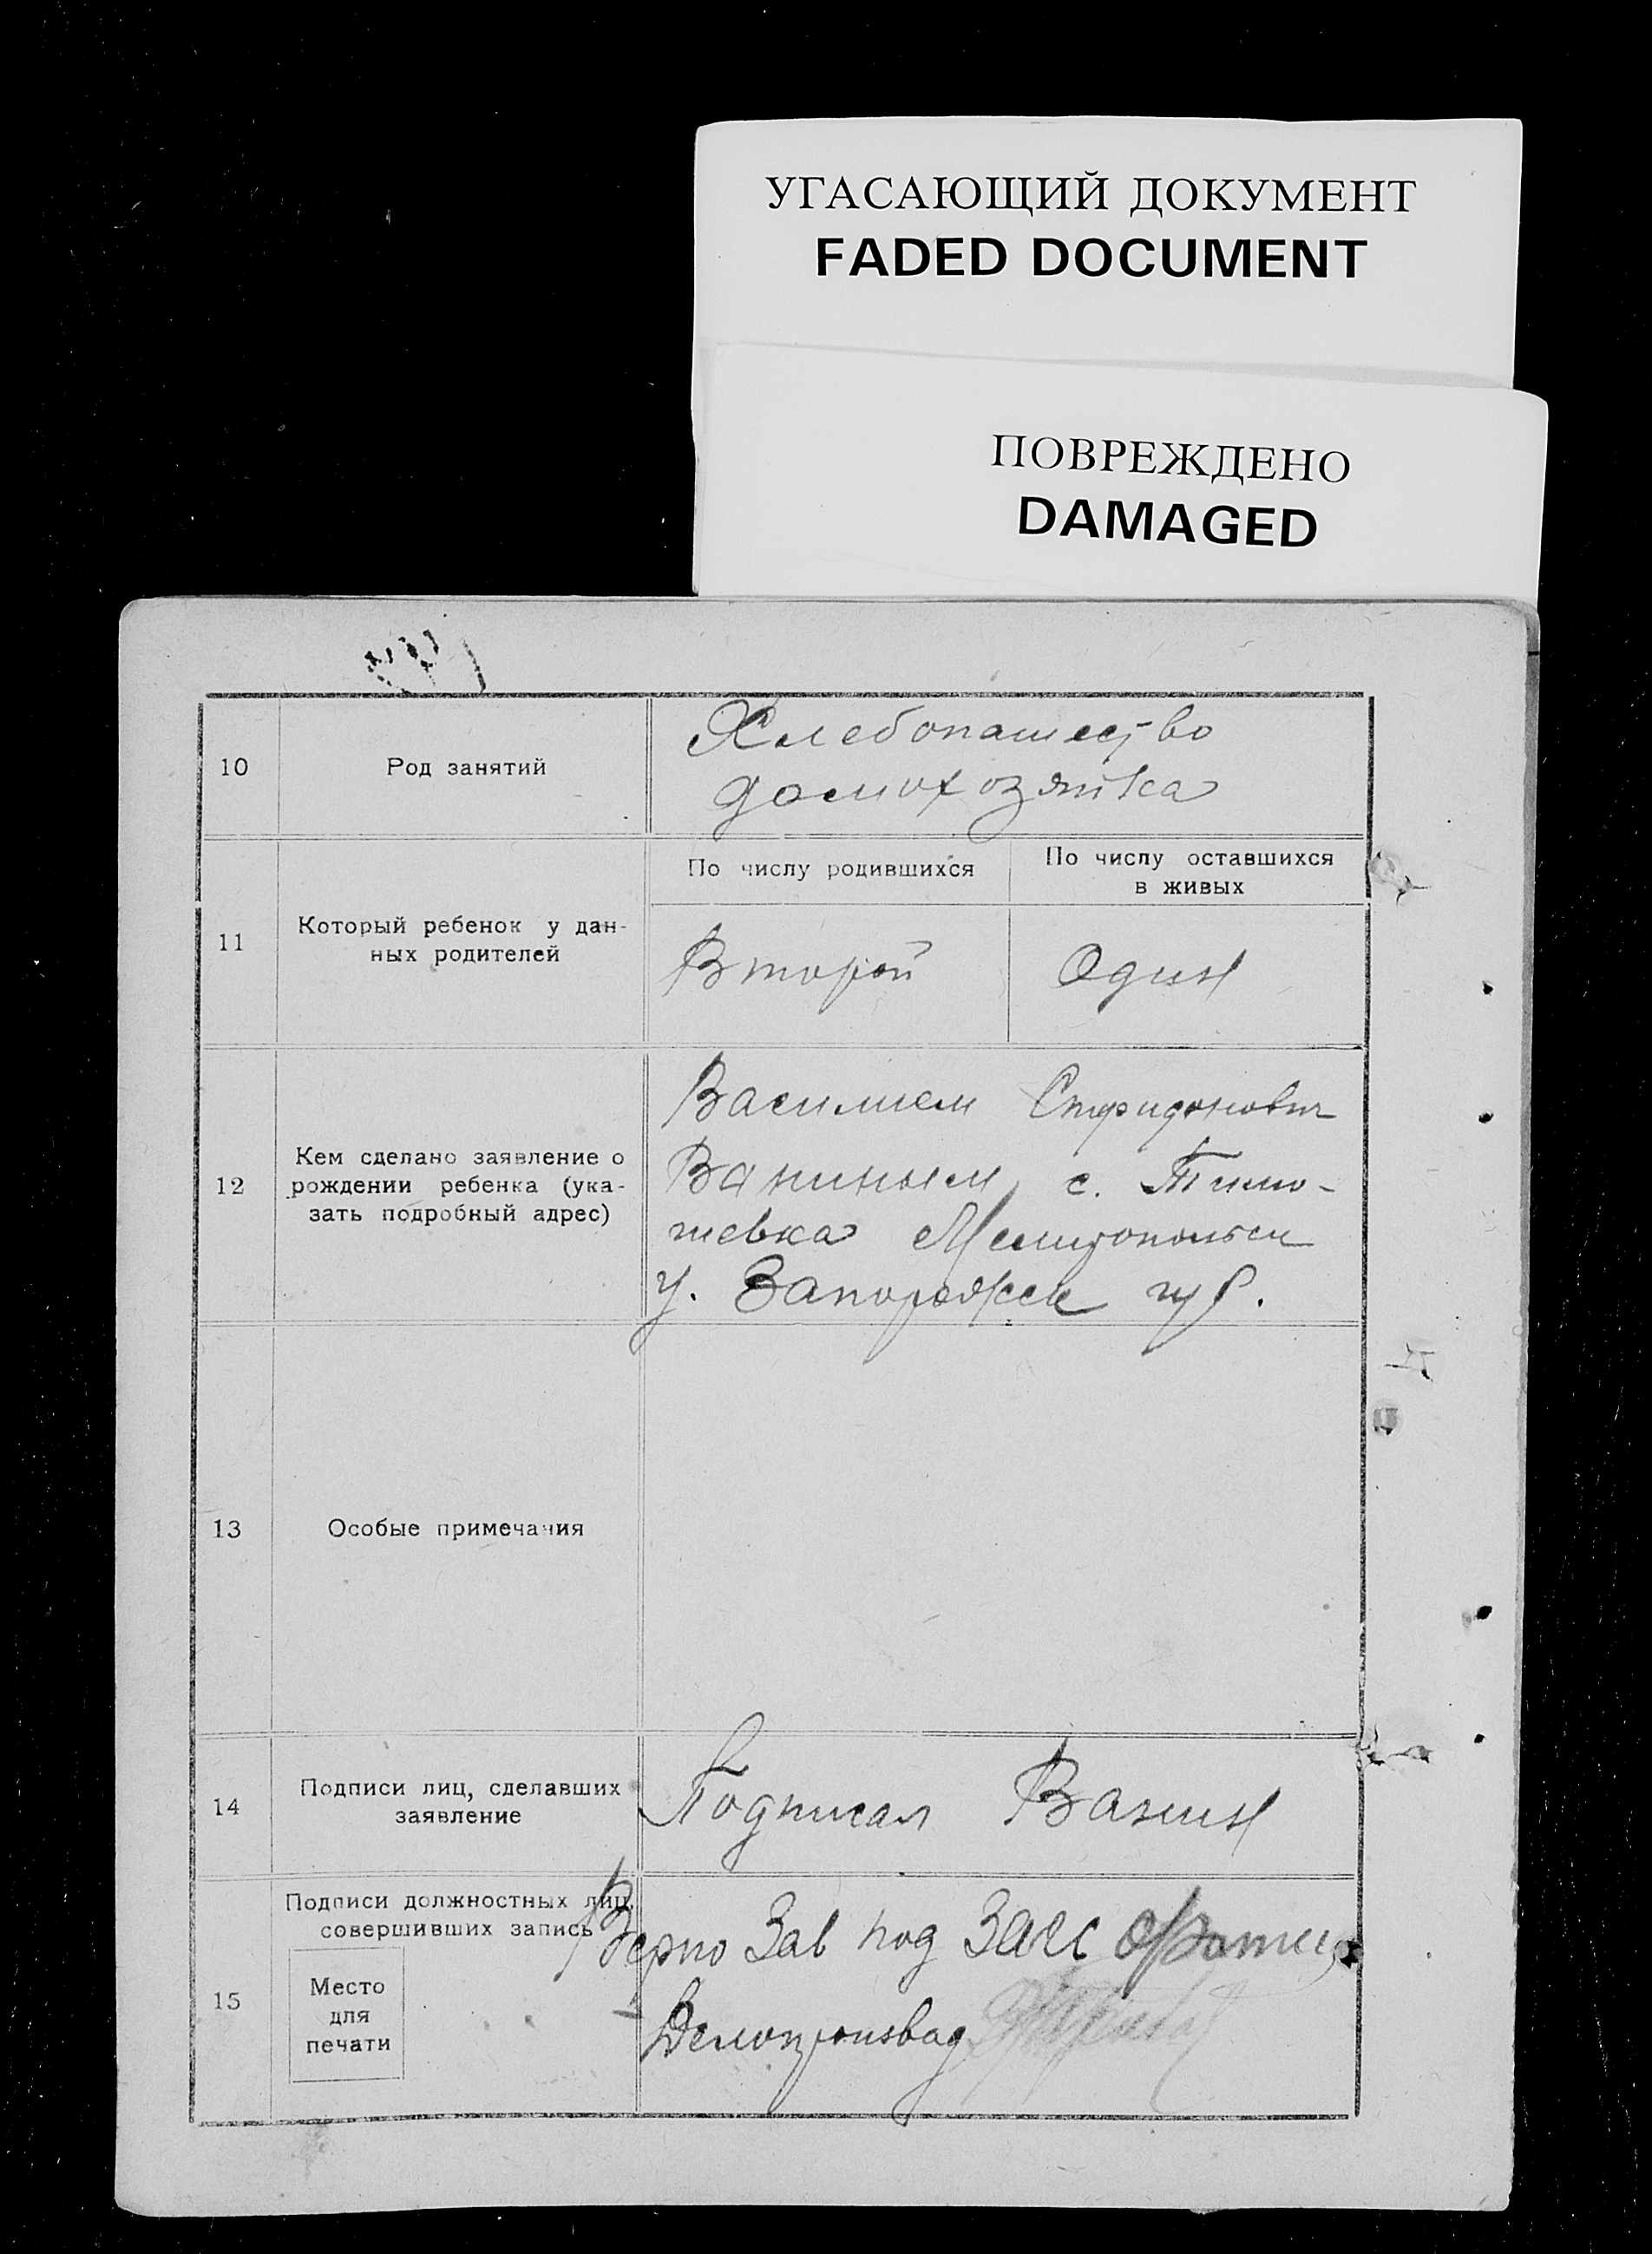 УГАСАЮЩИЙ ДОКУМЕНТ
FADED DOCUMENT
ПОВРЕЖДЕНО
DAMAGED
10
Род занятий
Хлебопашество
домохозяйка
11
Который ребенок у дан-
ных родителей
По числу родившихся
По числу оставшихся
в живых
Второй
Один
12
Кем сделано заявление о
рождении ребенка (ука-
зать подробный адрес)
Василием Спиридонович
Ваниным, с. Тимо-
шевка Мелитопольск
у. Запорожск губ.
13
Особые примечания
14
Подписи лиц, сделавших
заявление
Подписал Ванин
15
Подписи должностных лиц,
совершивших запись
Место
для
печати
Верно Зав под Загс
Делопроизвод